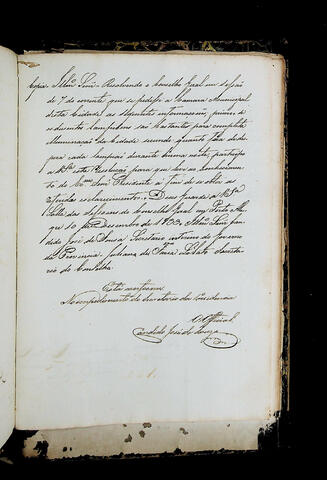 Copia Illmo Snr. Resolvendo o Conselho Geral em Sessão
de 7 do corrente que se pedisse a Camara Municipal
desta Cidade as seguintes informaçoens, primeiro
se duzentos Lampeoens são bastantes para completa
illuminação da Cidade segundo quanto fará de des
peza cada lampeão durante hum anno, participo
a VSa. esta Resolução para que leve ao conhecimen
to do Exmo. Snr. Presidente a fim de se obter os
esclarecimentos. Deus Guarde a VSa.
Salla das Sessoens do Conselho Geral em Porto Ale
gre 10 de Dezembro de 1833. Illmo Snr.
José de Souza Secretario interino do Governo
da Provincia. Juliano de Faria Lobato Secreta
rio do Conselho.
Está conforme
No impedimento do Secretario da Presidencia
O Official
Candido José de Souza